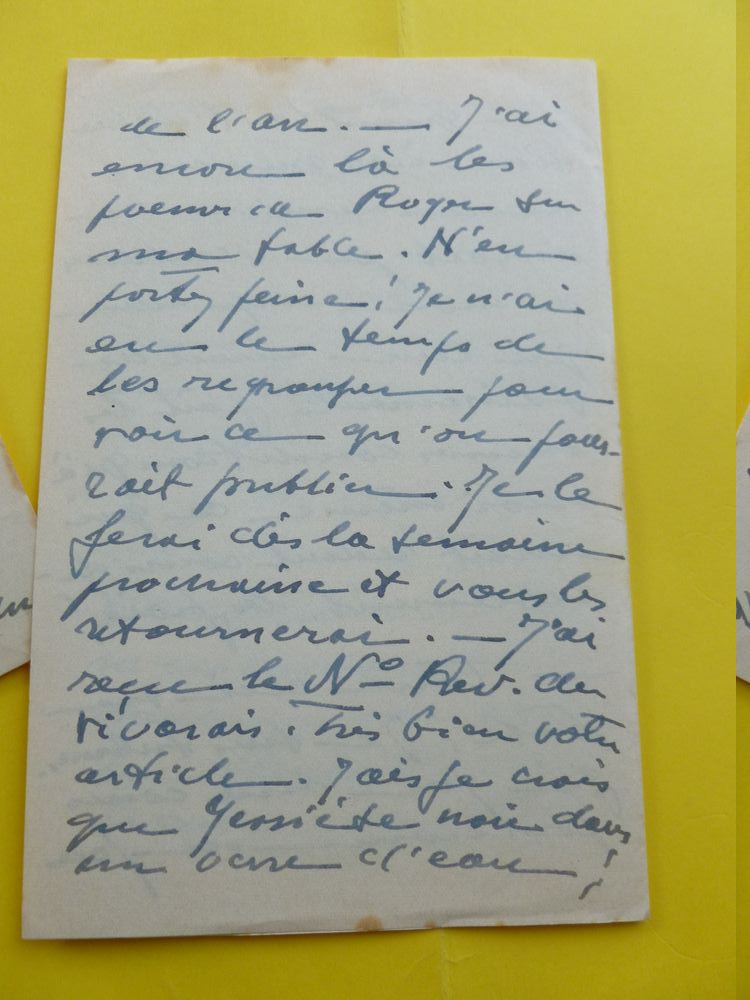 de l'an. — J'ai
encore là les
poèmes de Roger sur
ma table. N'en
portez peine! Je n'ai
eu le temps de
les regrouper pour
voir ce qu'on pour-
rait publier. Je le
ferai dès la semaine
prochaine et vous les
retournerai. — J'ai
reçu le Nº Rev. du
Vivarais. Très bien votre
article. Mais je crois
que noie dans
un verre d'eau!